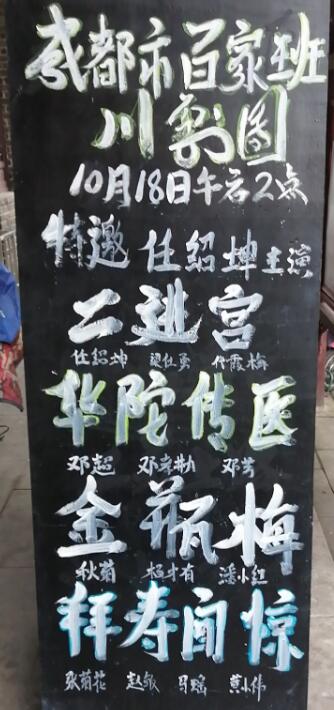 成都市百家班
川剧团
10月18日午后2点
特邀 任绍坤主演
二进宫
任绍坤 梁仕勇 代霞梅
华陀传医
邓超 邓芳
金瓶梅
秋菊 杨才有 潘小红
拜寿闻惊
张菊花 赵敏 马瑶 黄小伟